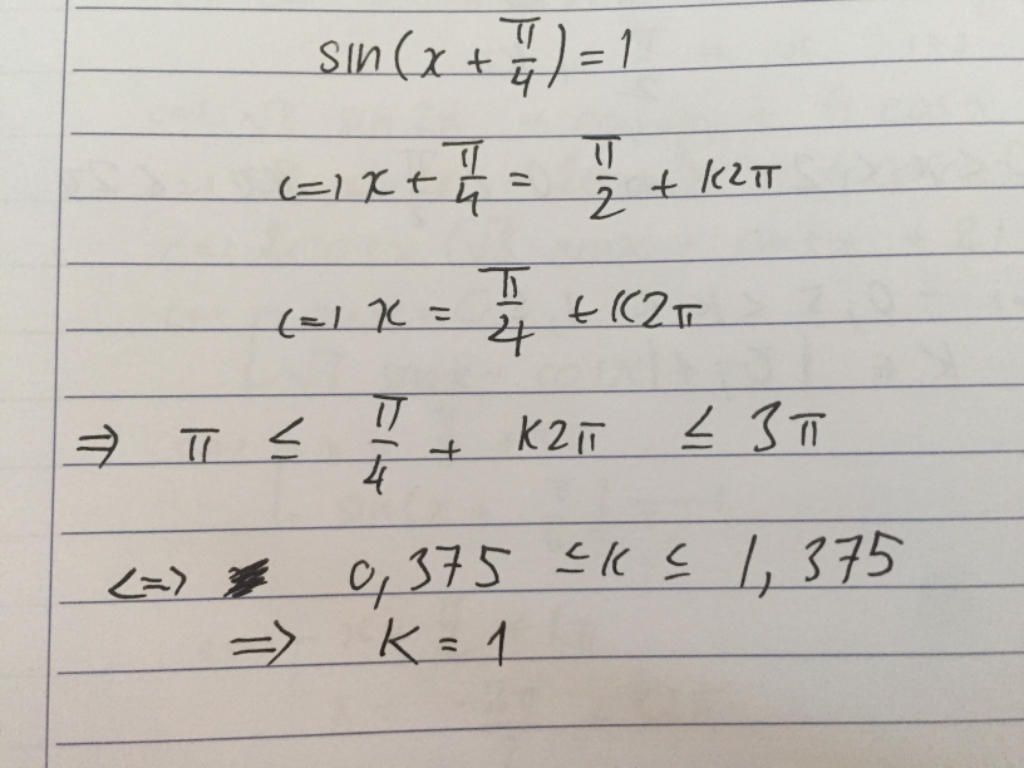 sin(x + π/4) = 1
<=> x + π/4 = π/2 + k2π
<=> x = π/4 + k2π
=> π ≤ π/4 + k2π ≤ 3π
<=> 0,375 ≤ k ≤ 1,375
=> K = 1